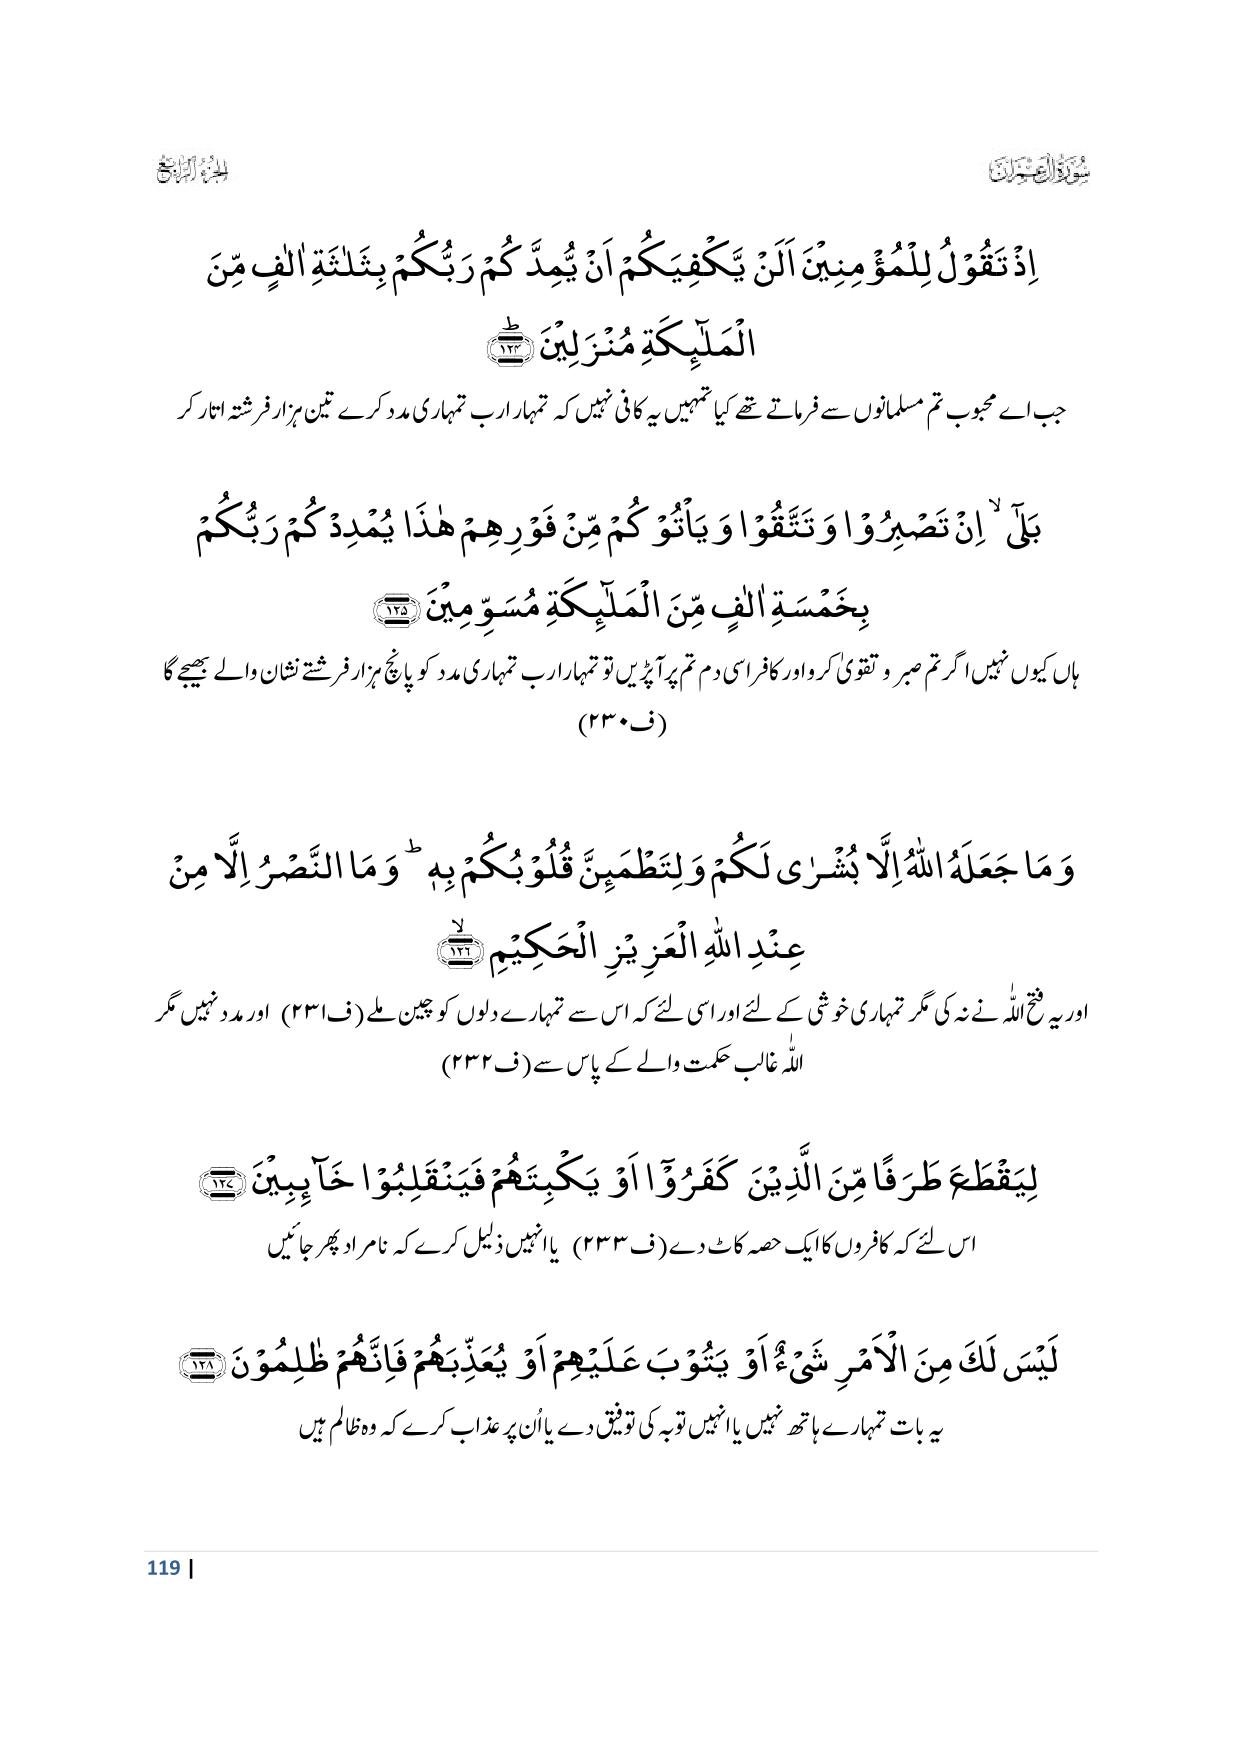 سُوْرَةُ اٰلِ عِمْرَان
الجزء الرابع
اِذْ تَقُوْلُ لِلْمُؤْمِنِيْنَ اَلَنْ يَّكْفِيَكُمْ اَنْ يُّمِدَّكُمْ رَبُّكُمْ بِثَلٰثَةِ اٰلٰفٍ مِّنَ
الْمَلٰٓئِكَةِ مُنْزَلِيْنَ ؕ ﴿۱۲۴﴾
جب اے محبوب تم مسلمانوں سے فرماتے تھے کیا تمہیں یہ کافی نہیں کہ تمہارا رب تمہاری مدد کرے تین ہزار فرشتہ اتار کر
بَلٰٓى ۙ اِنْ تَصْبِرُوْا وَ تَتَّقُوْا وَ يَاْتُوْكُمْ مِّنْ فَوْرِهِمْ هٰذَا يُمْدِدْكُمْ رَبُّكُمْ
بِخَمْسَةِ اٰلٰفٍ مِّنَ الْمَلٰٓئِكَةِ مُسَوِّمِيْنَ ﴿۱۲۵﴾
ہاں کیوں نہیں اگر تم صبر و تقویٰ کرو اور کافر اسی دم تم پر آ پڑیں تو تمہارا رب تمہاری مدد کو پانچ ہزار فرشتے نشان والے بھیجے گا
(ف۲۳۰)
وَ مَا جَعَلَهُ اللّٰهُ اِلَّا بُشْرٰى لَكُمْ وَ لِتَطْمَئِنَّ قُلُوْبُكُمْ بِهٖ ؕ وَ مَا النَّصْرُ اِلَّا مِنْ
عِنْدِ اللّٰهِ الْعَزِيْزِ الْحَكِيْمِ ۙ ﴿۱۲۶﴾
اور یہ فتح اللّٰہ نے نہ کی مگر تمہاری خوشی کے لئے اور اسی لئے کہ اس سے تمہارے دلوں کو چین ملے (ف۲۳۱) اور مدد نہیں مگر
اللّٰہ غالب حکمت والے کے پاس سے (ف۲۳۲)
لِيَقْطَعَ طَرَفًا مِّنَ الَّذِيْنَ كَفَرُوْۤا اَوْ يَكْبِتَهُمْ فَيَنْقَلِبُوْا خَآئِبِيْنَ ﴿۱۲۷﴾
اس لئے کہ کافروں کا ایک حصہ کاٹ دے (ف۲۳۳) یا انہیں ذلیل کرے کہ نامراد پھر جائیں
لَيْسَ لَكَ مِنَ الْاَمْرِ شَیْءٌ اَوْ يَتُوْبَ عَلَيْهِمْ اَوْ يُعَذِّبَهُمْ فَاِنَّهُمْ ظٰلِمُوْنَ ﴿۱۲۸﴾
یہ بات تمہارے ہاتھ نہیں یا انہیں توبہ کی توفیق دے یا اُن پر عذاب کرے کہ وہ ظالم ہیں
119 |